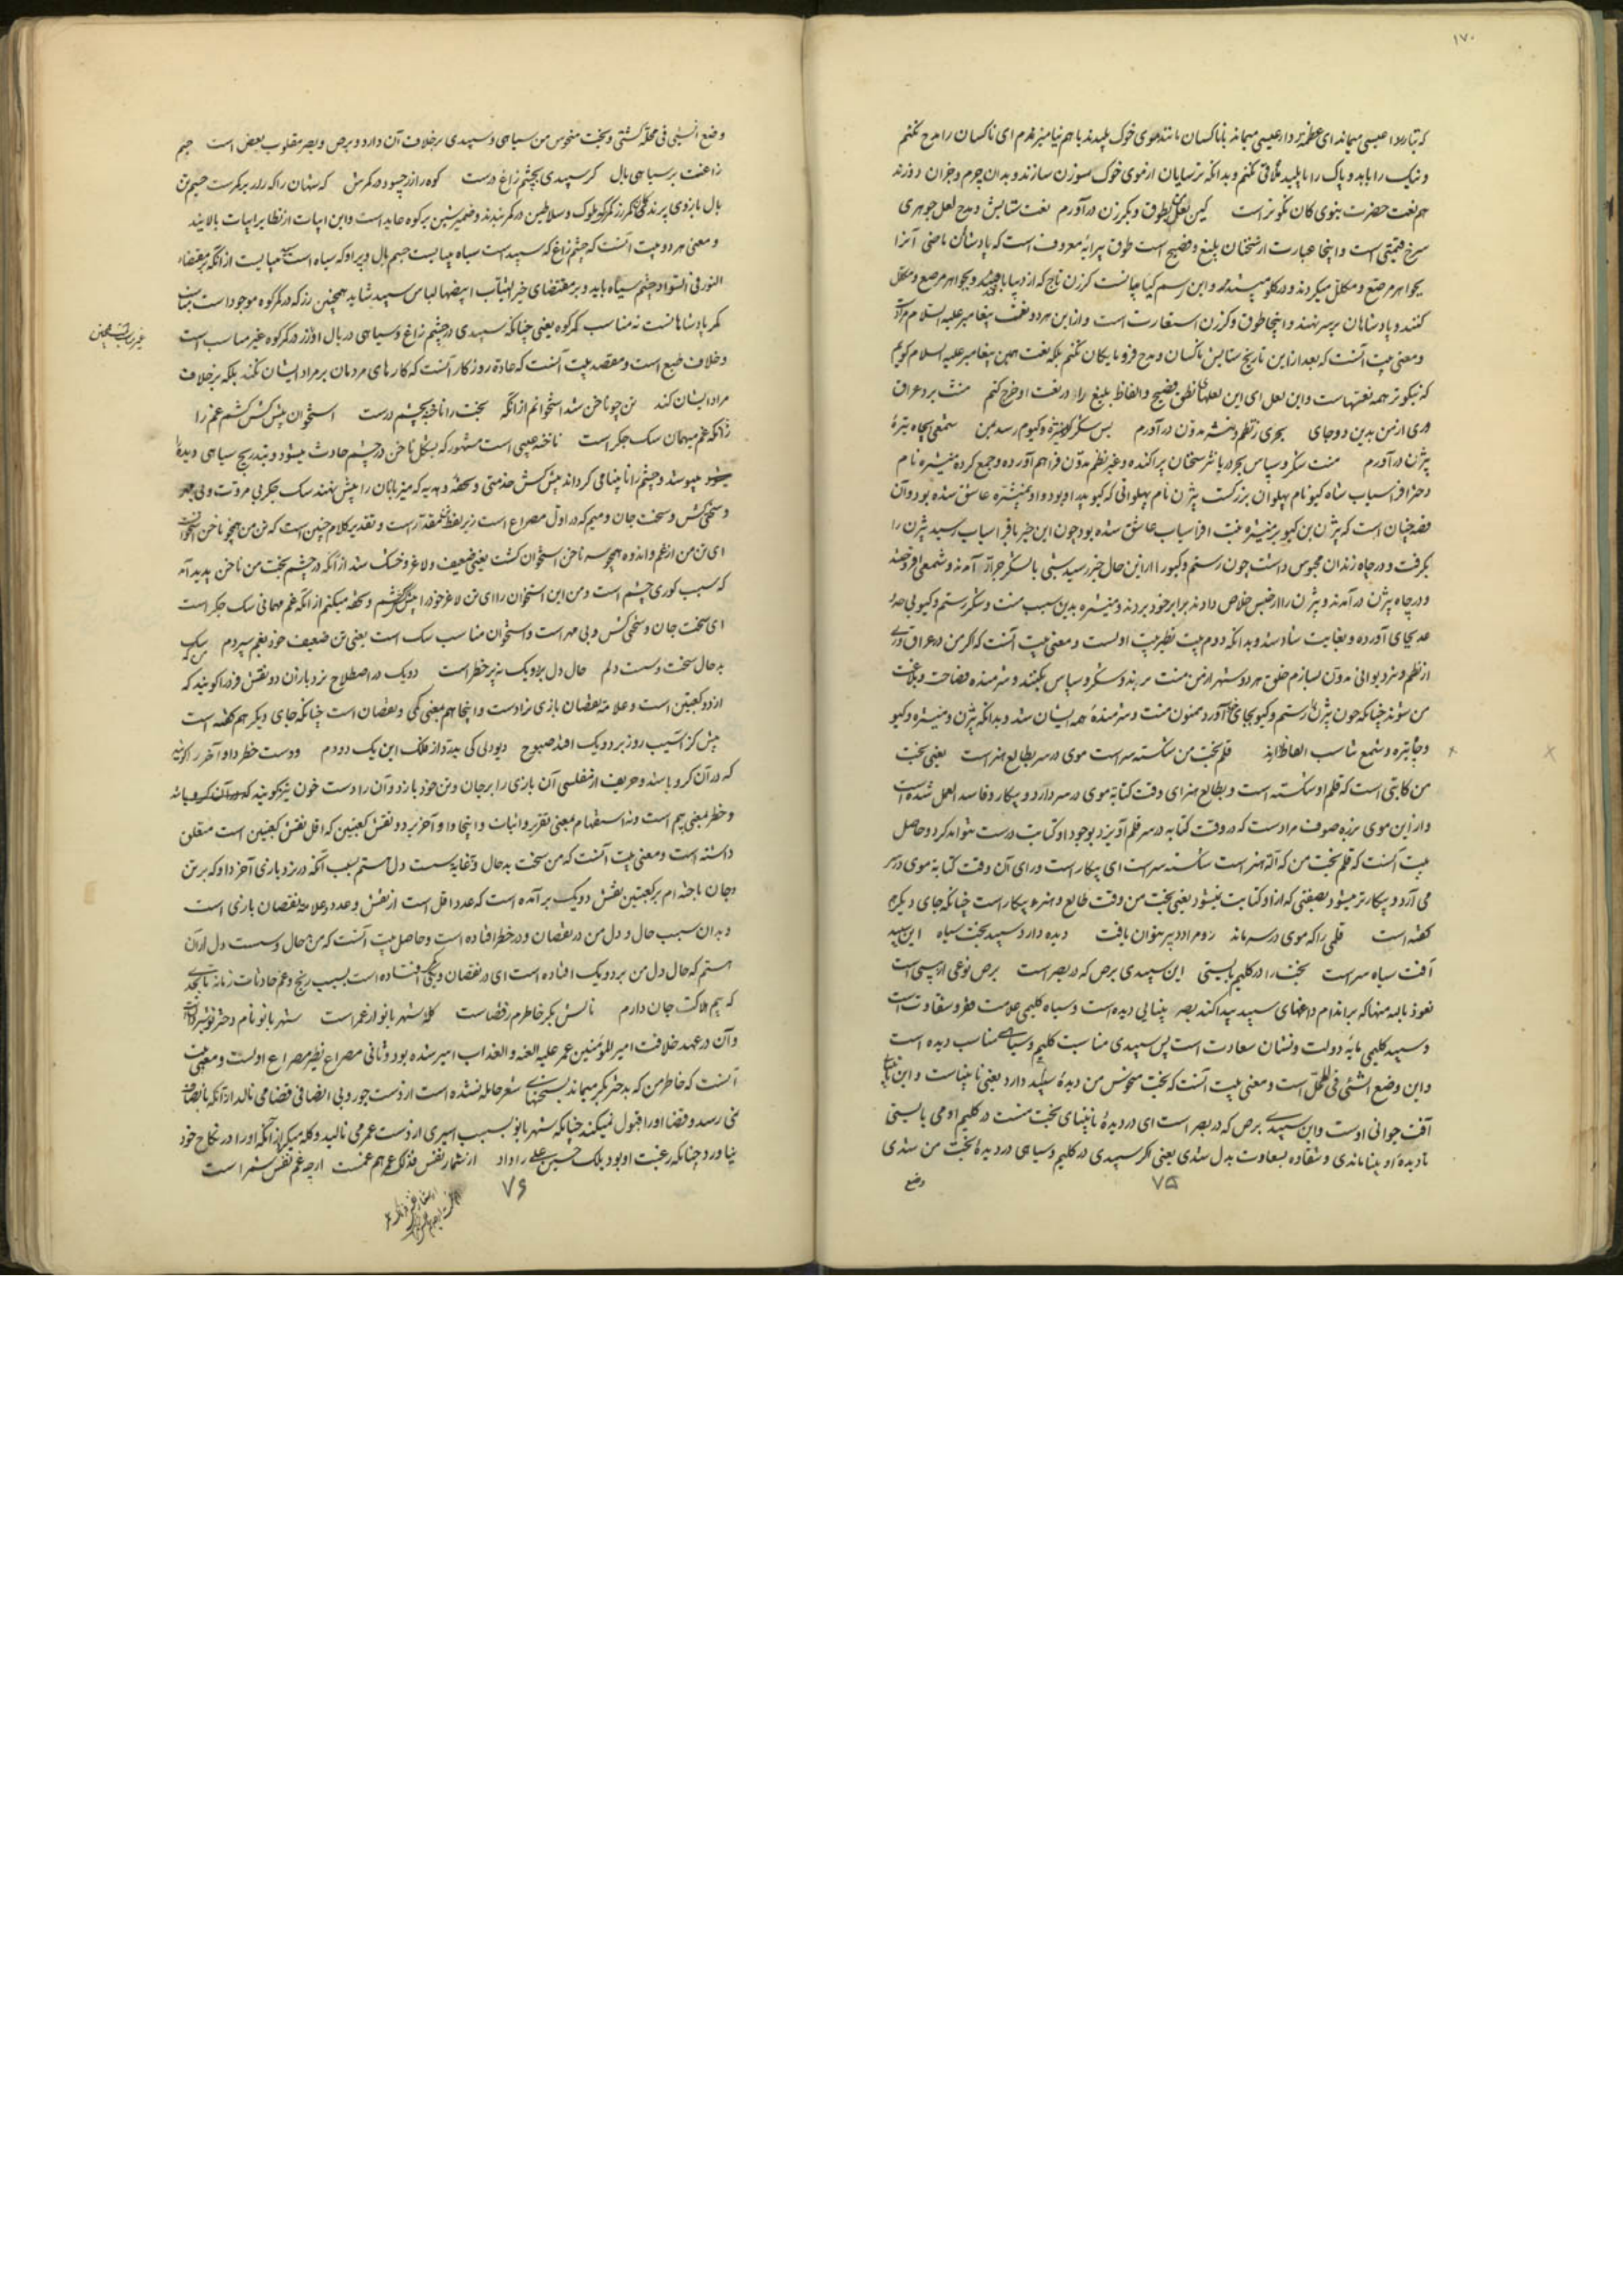 ۱۷۰
که بتارود عیسی میماند ای عطمه بر دار عیسی میماند با ناکسان مانند موی خوک پلیدند با هم نیامیزم ای ناکسان را مدح نکنم
و نیک را با بد و پاک را با پلید ملاقی نکنم و بدانکه ترسایان از موی خوک سوزن سازند و بدان چرم و جزان دوزند
هم نعت حضرت نبوی کان نکوتر است کین لعل بطوق و بکرزن در آورم نعت ستایش و مدح لعل جوهری
سرخ قیمتی است و اینجا عبارت از سخنان بلیغ و فصیح است طوق پیرایه معروف است که پادشاهان ماضی آنرا
بجواهر مرصع و مکلل میکردند و در گلو می‌بستند و این رسم کیانیانست کرزن تاج که از دیبا بافند و بجواهر مرصع و مکلل
کنند و پادشاهان بر سر نهند و اینجا طوق و کرزن استعارت است و از این هر دو نعت پیغامبر علیه السلام مراد است
و معنی بیت آنست که بعد از این تاریخ ستایش ناکسان و مدح فرومایکان نکنم بلکه نعت همین پیغامبر علیه السلام کویم
که نیکوتر همه نعتهاست و این لعل ای این لعلها نطق فصیح و الفاظ بلیغ را در نعت او خرج کنم منت برد عراق
وری از من بدین دو جای بحری ز نظم و نثر مدون در آورم پس شکر و کیوم رسد من شمعی بچاه تیرهٔ
بیژن در آورم منت شکر و سپاس بحر دریا نثر سخنان پراکنده و غیر نظم مدون فراهم آورده و جمع کرده منیژه نام
دختر افراسیاب شاه کیو نام پهلوان بزرکست بیژن نام پهلوانی که کیو پدر او بود و او بمنیژه عاشق شده بود و آن
قصه چنان است که بیژن بن کیو بر منیژه بنت افراسیاب عاشق شده بود چون این خبر بافراسیاب رسید بیژن را
بکرفت و در چاه زندان محبوس داشت چون رستم و کیو را از این حال خبر رسید شبی با لشکر جرار آمدند و شمعی افروختند
و در چاه بیژن در آمدند و بیژن را از حبس خلاص دادند برابر خود بردند و منیژه بدین سبب منت و شکر رستم و کیو بی حد و
عد بجای آورده و بغایت شاد شد و بدانکه دوم بیت نظیر بیت اولست و معنی بیت آنست که اگر من در عراق و ری
از نظم و نثر دیوانی مدون بسازم خلق هر دو شهر از من منت برند و شکر و سپاس بکنند و شرمنده فصاحت و بلاغت
من شوند چنانکه چون بیژن را رستم و کیو بجای آورد ممنون منت و شرمندهٔ همه ایشان شد و بدانکه بیژن و منیژه و کیو
و چاه تیره و شمع تناسب الفاظ اند قلم بخت من شکسته سر است موی در سر بطالع هنر است یعنی بخت
من کاتبی است که قلم او شکسته است و بطالع هنر ای وقت کتابه موی در سر دارد و بیکار و فاسد العمل شده است
و از این موی برزه صوف مراد است که در وقت کتابه در سر قلم آویزد بوجود او کتابت درست نتواند کرد و حاصل
بیت آنست که قلم بخت من که آلهٔ هنر است شکسته سر است ای بیکار است و رای آن وقت کتابه موی در سر
می آرد و بیکارتر میشود بصفتی که از او کتابت نمیشود یعنی بخت من وقت طالع و هنر بیکار است چنانکه جای دیکر هم
کفته است قلمی را که موی در سر ماند روم مداد دبیر عنوان یافت دیده دارد سپید بخت سیاه این سپید
آفت سیاه سر است بخت را در کلیم بایستی این سپیدی برص که در بصر است برص نوعی از پیسی است
نعوذ بالله منها که بر اندام داغهای سپید پیدا کند بصر بینایی دیده است و سیاه کلیمی علامت فقر و شقاوت است
و سپید کلیمی مایهٔ دولت و نشان سعادت است پس سپیدی مناسبت کلیم و سیاهی مناسب دیده است
و این وضع الشئ فی المحل است و معنی بیت آنست که بخت منحوس من دیدهٔ سپید دارد یعنی نابیناست و این
آفت جوانی اوست و این سپیدی برص که در بصر است ای در دیدهٔ نابینای بخت منست در کلیم او می بایستی
تا دیدهٔ او بینا ماندی و شقاوه بسعادت بدل شدی یعنی اکر سپیدی در کلیم و سیاهی در دیدهٔ بخت من شدی
وضع
۷۵
وضع الشئ فی محله کشتی و بخت منحوس من سیاهی و سپیدی برخلاف آن دارد و برص و بصر مقلوب بعض است چشم
زاغست بر سیاهی بال کر سپیدی بچشم زاغ درست کوه را زر چسود در کمرش که شهان را که زر بر کمرست
بال بازوی پرند کمر زر کمر که ملوک و سلاطین در کمر بندند و ضمیر شین بر کوه عاید است و این ابیات از نظایر ابیات بالایند
و معنی هر دو بیت آنست که چشم زاغ که سپید است سیاه میبایست و پر او که سیاه است سپید میبایست از آنکه بمقتضاء
النور فی السواد چشم سیاه باید و بر مقتضای خیر الثیاب ابیضها لباس سپید شاید همچنین زر که در کمر کوه موجود است مناسب
کمر پادشاهانست نه مناسب کمر کوه یعنی چنانکه سپیدی در چشم زاغ و سیاهی در بال او و زر در کمر کوه غیر مناسب است
و خلاف طبع است و مقصد بیت آنست که عادة روزکار آنست که کارهای مردمان بر مراد ایشان نکند بلکه برخلاف
مراد ایشان کند تن چو ناخن شد استخوانم از آنکه بخت را ناخنه بچشم درست استخوان پیش کش کنم غم را
زانکه غم میهمان سک جکر است ناخنه عیبی است مشهور که بشکل ناخن در چشم حادث میشود و بتدریج سیاهی دیده را
میپوشد و چشم را نابینا می کرداند پیش کش خدمتی و تحفه و هدیه که میزبانان را پیش نهند سک جکر بی مروت و بی مهر
و سختی کش و سخت جان و میم که در اول مصراع است زیر لفظ تن مقدر است و تقدیر کلام چنین است که تن من همچو ناخن استخوان شد
ای تن من از غم و اندوه همچو سه ناخن استخوان کشت یعنی ضعیف و لاغر و خشک شد از آنکه در چشم بخت من ناخن پدید آمد
که سبب کوری چشم است و من این استخوان را ای تن لاغر خود را پیش کش غم و تحفه میکنم از آنکه غم مهمانی سک جکر است
ای سخت جان و سختی کش و بی مهر است و استخوان مناسب سک است یعنی تن ضعیف خود بغم سپردم
بد حال سخت و سست دلم حال دل بر دو یک نه پر خطر است دو یک در اصطلاح نرد بازان دو نقش فرد را کویند که
از دو کعبتین است و علامهٔ نقصان بازی نراد است و اینجا هم معنی کمی و نقصان است چنانکه جای دیکر هم کفته است
پیش کز آسیب روز بر دو یک افتد صبوح دیودلی کن بدزد از فلک این یک دو دم و دست خطر داو آخر را کویند
که در آن کرو باشد و حریف از مفلسی آن بازی را بر جان و تن خود بازد و آن را دست خون نیز کویند
و خطر بمعنی بیم است و نه استفهام بمعنی تقریر و اثبات و اینجا داو آخر بر دو نقش کعبتین که اقل نقش کعبتین است متعلق
داشته است و معنی بیت آنست که من سخت بد حال و بغایه سست دل هستم بسبب آنکه در نرد بازی آخر داو که بر تن
و جان باخته ام بر کعبتین نقش دو یک بر آمده است که عدد اقل است از نقش و عدد و علامهٔ نقصان بازی است
و بدان سبب حال و دل من در نقصان و در خطر افتاده است و حاصل بیت آنست که من بد حال و سست دل از آن
هستم که حال دل من بر دو یک افتاده است ای در نقصان و کمی افتاده است بسبب رنج و غم حادثات زمانه تا بحد
که بیم هلاکت جان دارم نالش بکر خاطرم ز قضاست کلهٔ شهربانو از عمر است شهربانو نام دختر نوشیروان است
و آن در عهد خلافت امیر المؤمنین عمر علیه اللعنه و العذاب اسیر شده بود و ثانی مصراع نظیر مصراع اولست و معنی بیت
آنست که خاطر من که بدختر بکر میماند بسخنهای شعر حامله نشده است از دست جور و بی انصافی قضا می نالد از آنکه بانصافش
نمی رسد و قضا او را قبول نمیکند چنانکه شهربانو بسبب اسیری از دست عمر می نالید و کله میکرد از آنکه او را در نکاح خود
نیاورد چنانکه رغبت او بود بلکه حسین علی را داد از شمار نفس فذلک عمر هم غمست ارچه غم نفس شمر است
۷۶